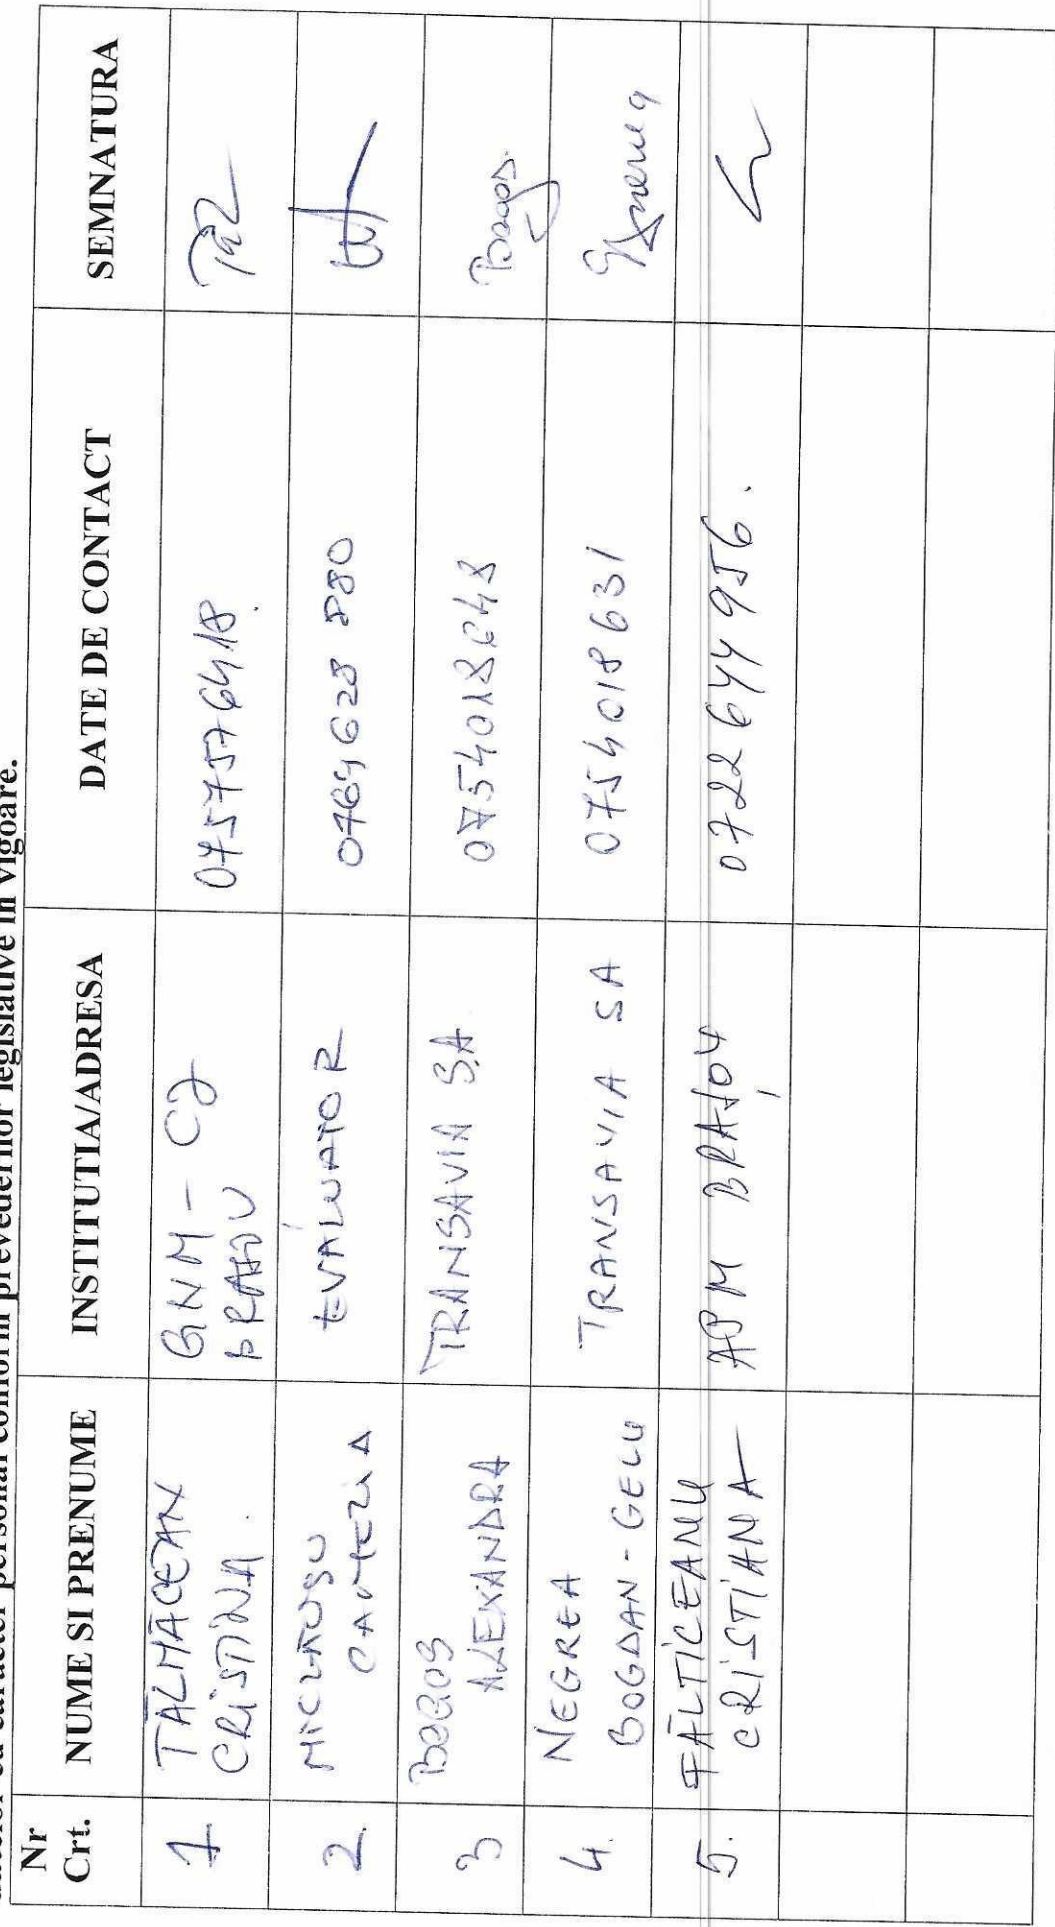 caracter personal conform prevederilor legislative in vigoare.
Nr Crt. NUME SI PRENUME INSTITUTIA/ADRESA DATE DE CONTACT SEMNATURA
1 TĂLMĂCEAN CRISTINA GNM - CJ BRAȘOV 0757576418. Tal
2. EVALUATOR 0764 628 880
3 BOGOS ALEXANDRA TRANSAVIA SA 0754018648 Bogos
4. NEGREA BOGDAN-GELU TRANSAVIA SA 0754018631
5. FĂLTICEANU CRISTIANA APM BRAȘOV 0722644956.